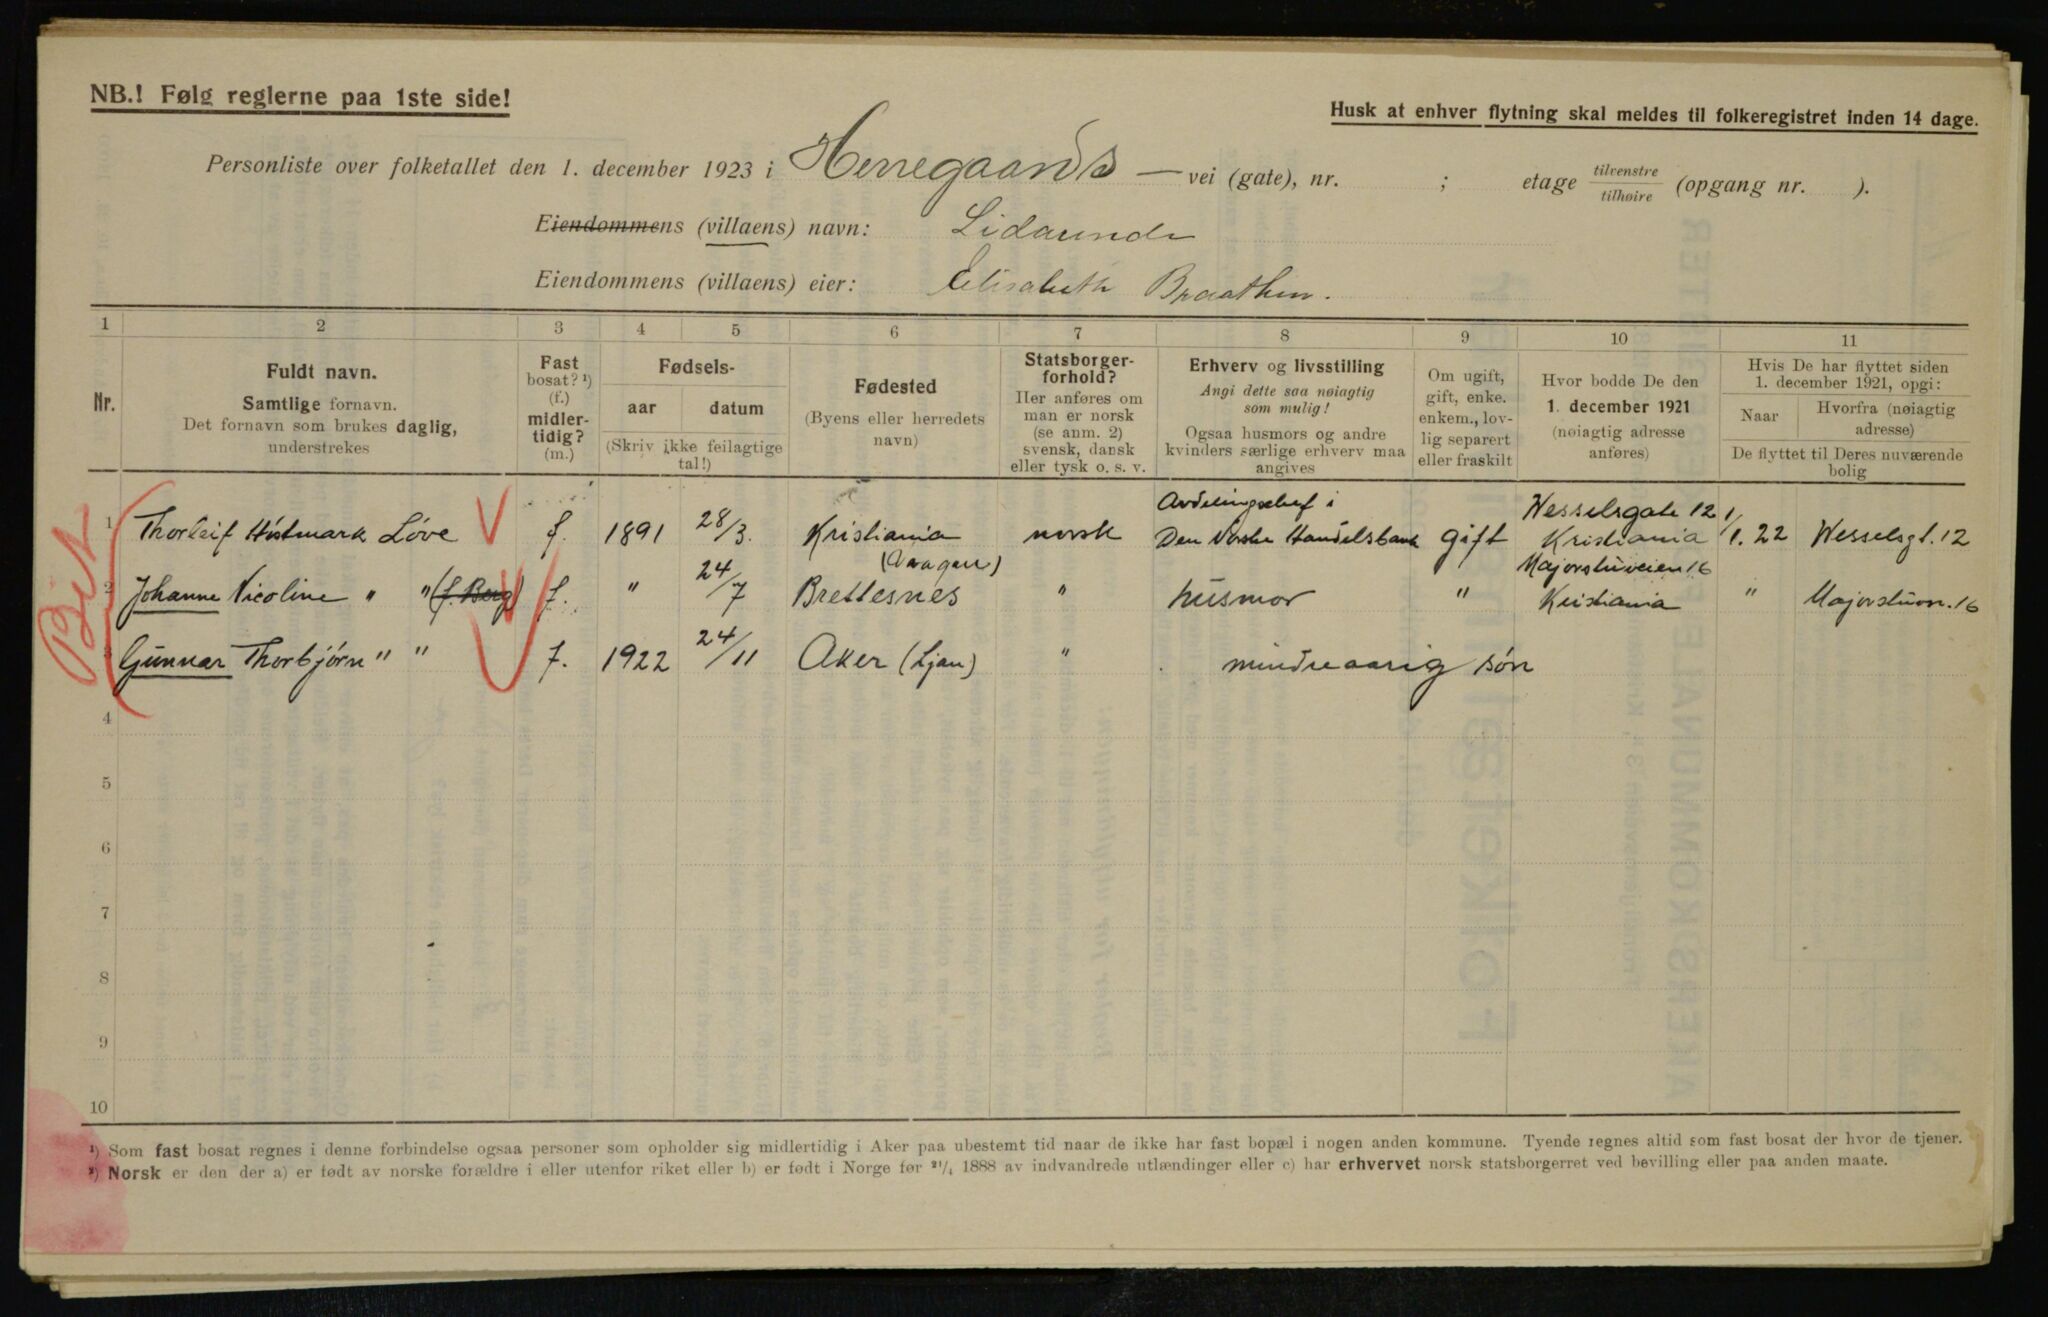 NB.! Følg reglerne paa 1ste side!
Husk at enhver flytning skal meldes til folkeregistret inden 14 dage.
Personliste over folketallet den 1. december 1923 i Herregaards — vei (gate), nr. ; etage tilvenstre/tilhøire (opgang nr. ).
Eiendommens (villaens) navn: Lidarende
Eiendommens (villaens) eier: Elisabeth Braathen.
1 2 3 4 5 6 7 8 9 10 11
Nr.
Fuldt navn.
Samtlige fornavn.
Det fornavn som brukes daglig,
understrekes
Fast
bosat? ¹)
(f.)
midler-
tidig?
(m.)
Fødsels-
aar datum
(Skriv ikke feilagtige
tal!)
Fødested
(Byens eller herredets
navn)
Statsborger-
forhold?
Her anføres om
man er norsk
(se anm. 2)
svensk, dansk
eller tysk o. s. v.
Erhverv og livsstilling
Angi dette saa nøiagtig
som mulig!
Ogsaa husmors og andre
kvinders særlige erhverv maa
angives
Om ugift,
gift, enke.
enkem., lov-
lig separert
eller fraskilt
Hvor bodde De den
1. december 1921
(nøiagtig adresse
anføres)
Hvis De har flyttet siden
1. december 1921, opgi:
Naar Hvorfra (nøiagtig
adresse)
De flyttet til Deres nuværende
bolig
1 Thorleif Høstmark Löve f. 1891 28/3. Kristiania norsk Avdelingschef i Den Norske Handelsbank gift Wesselsgate 12 Kristiania 1/1. 22 Wesselsgt. 12
2 Johanne Nicoline " " (f. Berg) f. " 24/7 Brettesnes (Vaagan) " husmor " Majorstuveien 16 Kristiania " Majorstuvn. 16
3 Gunnar Thorbjørn " " f. 1922 24/11 Aker (Ljan) " mindreaarig søn
4
5
6
7
8
9
10
¹) Som fast bosat regnes i denne forbindelse ogsaa personer som opholder sig midlertidig i Aker paa ubestemt tid naar de ikke har fast bopæl i nogen anden kommune. Tyende regnes altid som fast bosat der hvor de tjener.
²) Norsk er den der a) er født av norske forældre i eller utenfor riket eller b) er født i Norge før ²¹/₄ 1888 av indvandrede utlændinger eller c) har erhvervet norsk statsborgerret ved bevilling eller paa anden maate.